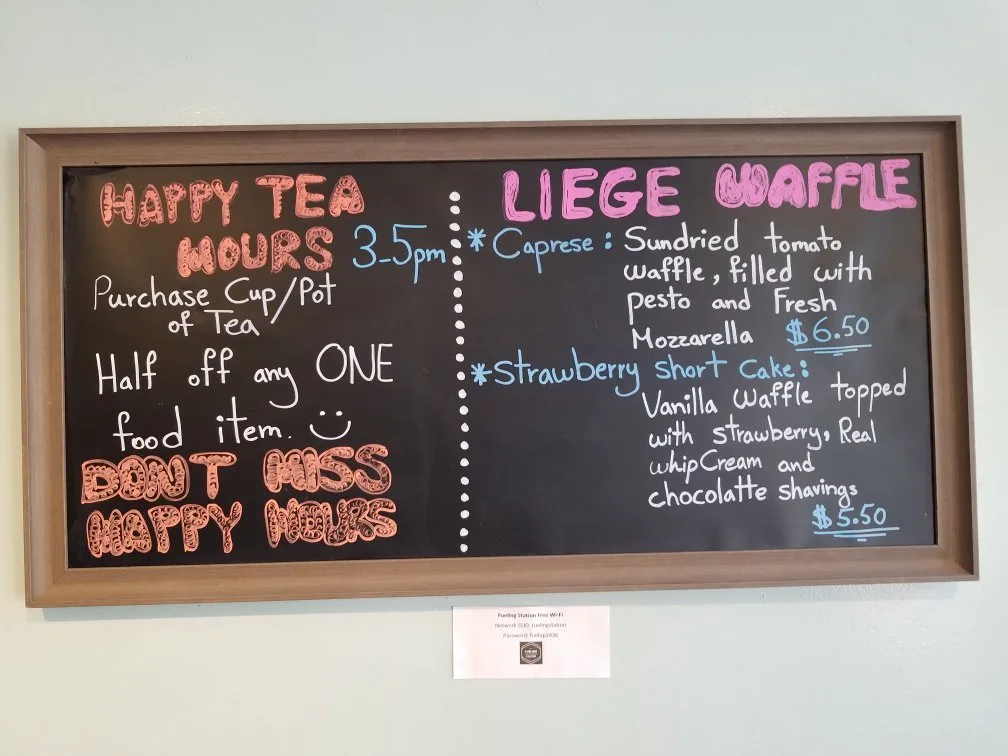 HAPPY TEA
HOURS 3-5pm
Purchase Cup/Pot
of Tea
Half off any ONE
food item. :)
DON'T MISS
HAPPY HOURS
LIEGE WAFFLE
* Caprese: Sundried tomato
waffle, filled with
pesto and Fresh
Mozzarella $6.50
* Strawberry Short Cake:
Vanilla Waffle topped
with strawberry, Real
whip Cream and
chocolatte shavings
$5.50
Fueling Station Free Wi-Fi
Network SSID: fuelingstation
Password: fuelup2436